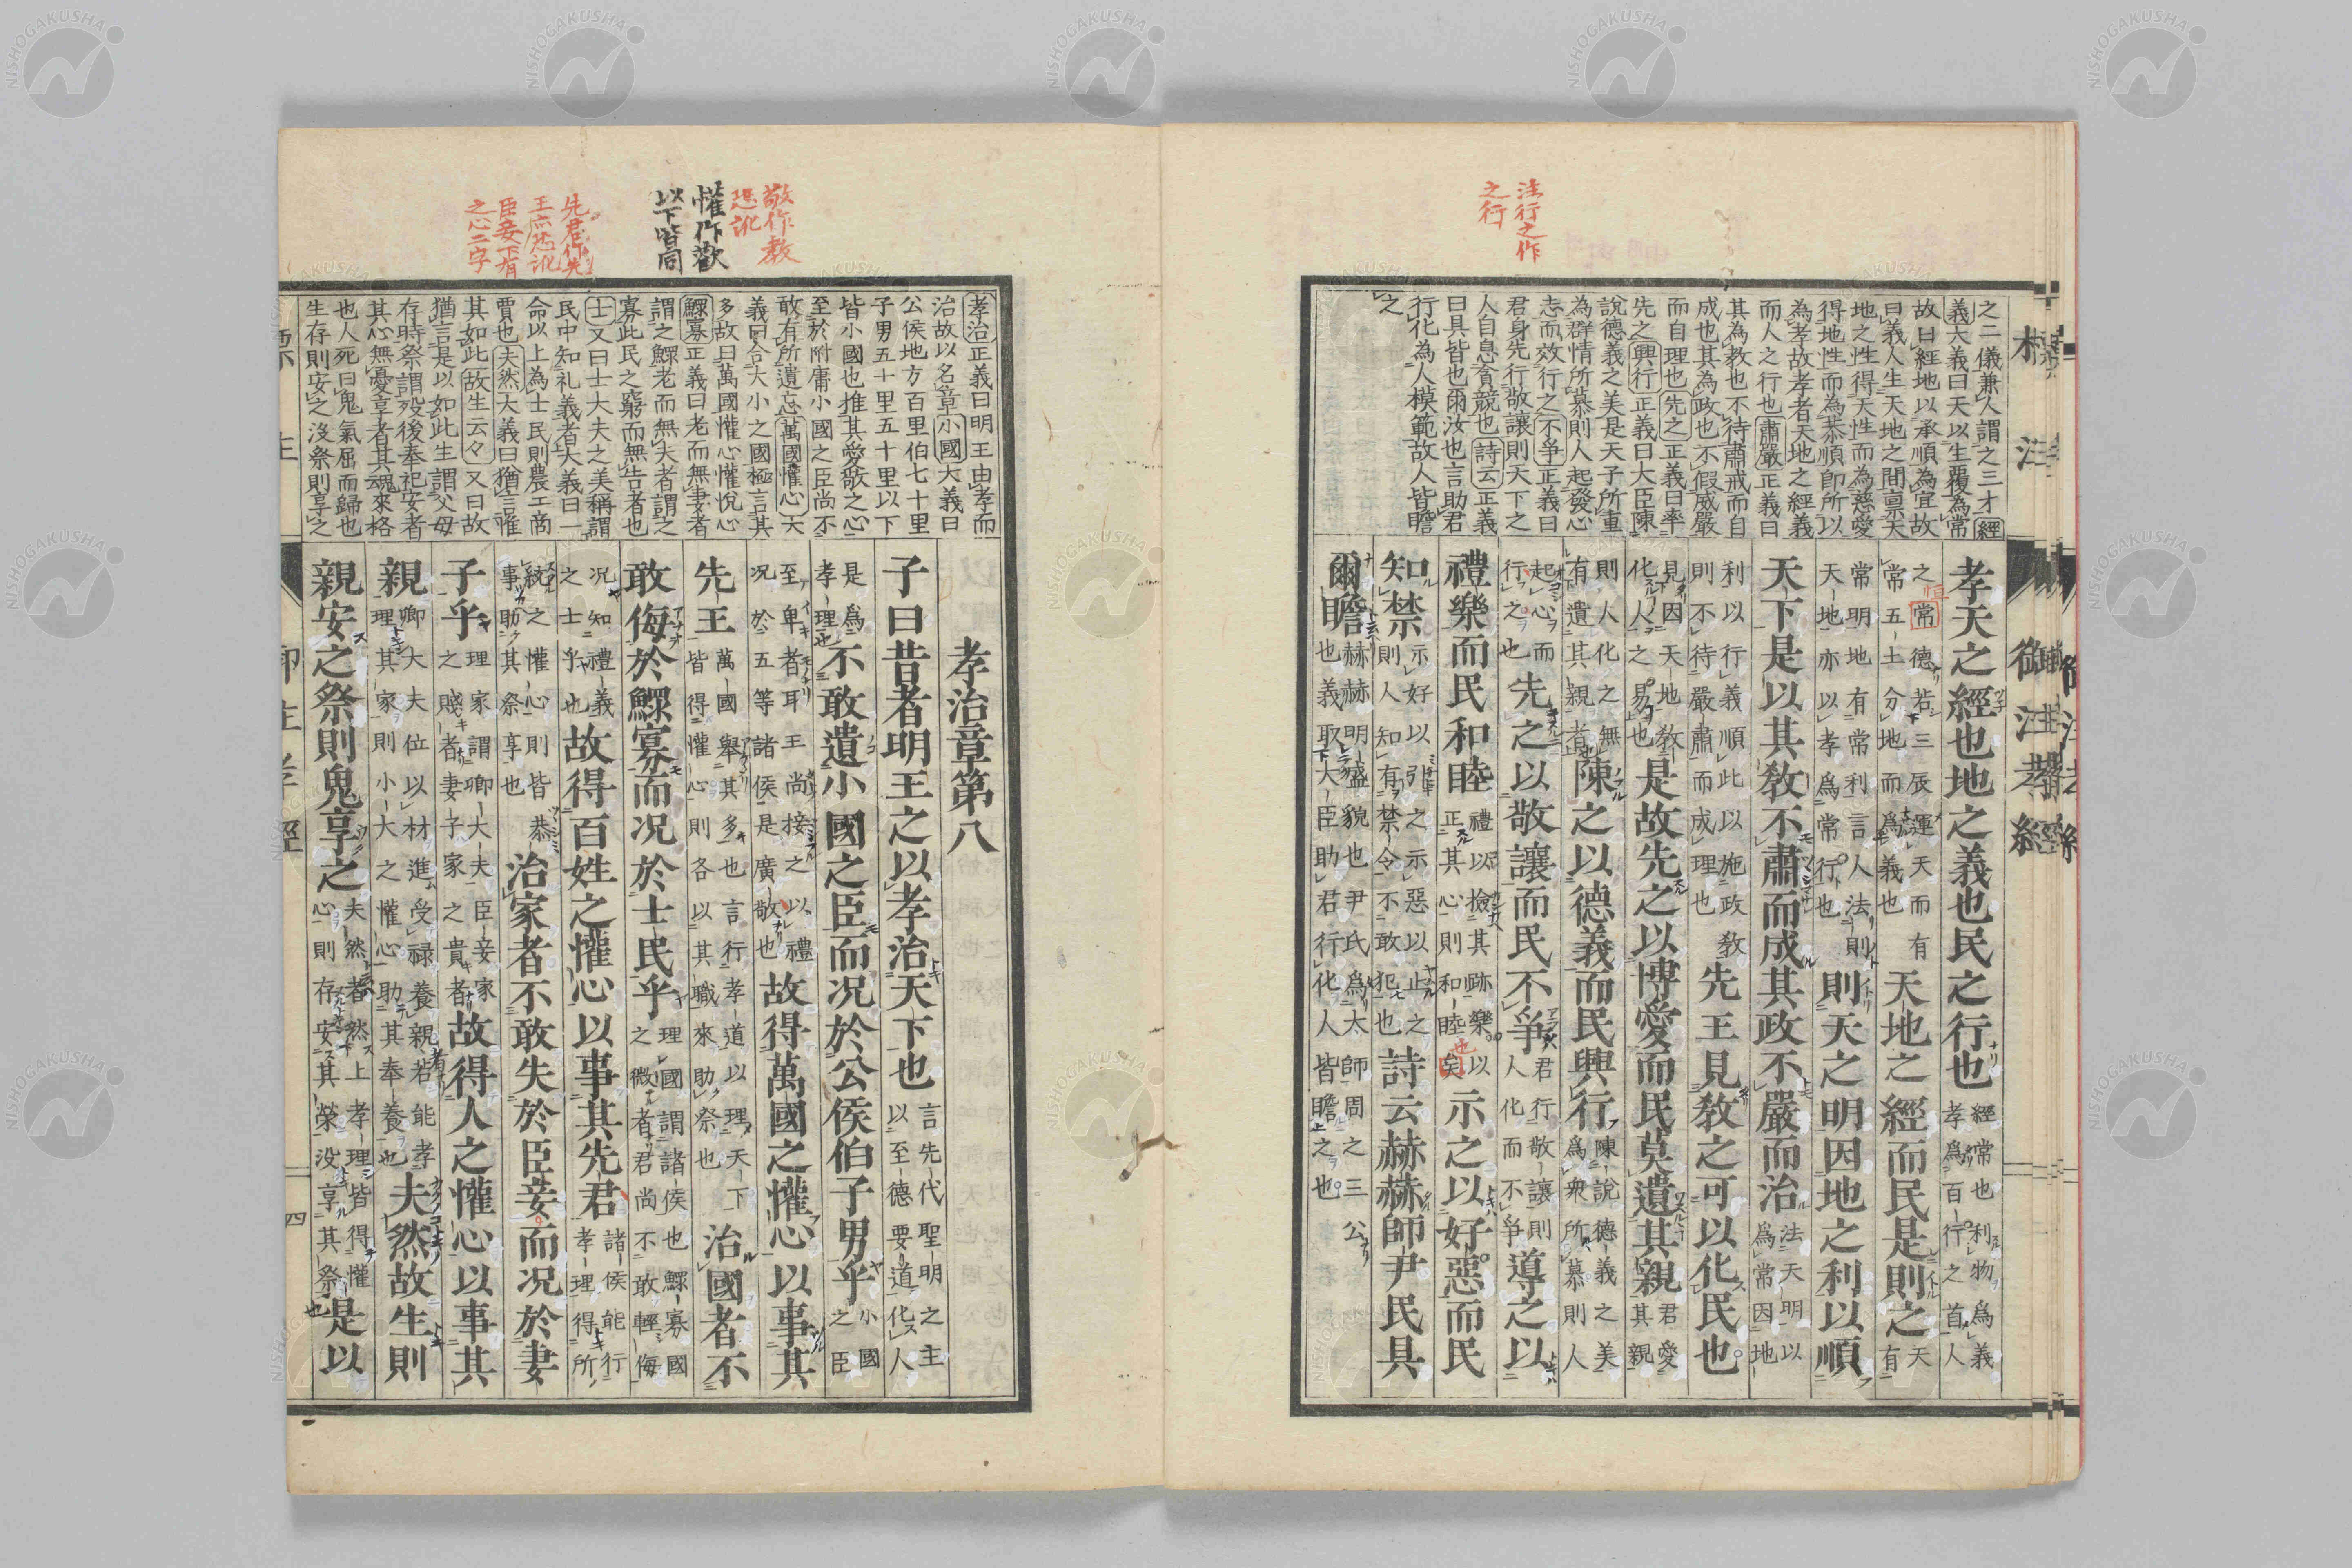 法行之作
之行
之二儀兼人謂之三才經
義大義曰天以生覆為常
故曰經地以承順為宜故
曰義人生天地之間稟天
地之性得天性而為慈愛
得地性而為恭順即所以
為孝故孝者天地之經義
而人之行也肅嚴正義曰
其為教也不待肅戒而自
成也其為政也不假威嚴
而自理也先之正義曰率
先之興行正義曰大臣陳
說德義之美是天子所重
為群情所慕則人起發心
志而效行之不爭正義曰
君身先行敬讓則天下之
人自息貪競也詩云正義
曰具皆也爾汝也言助君
行化為人模範故人皆瞻
之
孝天之經也地之義也民之行也經常也利物為義孝爲百行之首人
之常德若三辰運天而有常五土分地而爲義也天地之經而民是則之天有
常明地有常利言人法則天地亦以孝爲常行也則天之明因地之利以順
天下是以其教不肅而成其政不嚴而治法天明以爲常因地
利以行義順此以施政教則不待嚴肅而成理也先王見教之可以化民也
見因天地教化人之易也是故先之以博愛而民莫遺其親君愛其親
則人化之無有遺其親者陳之以德義而民興行陳說德義之美爲衆所慕則人
起心而行之也先之以敬讓而民不爭君行敬讓則人化而不爭導之以
禮樂而民和睦禮以檢其跡樂以正其心則和睦矣示之以好惡而民
知禁示好以引之示惡以止之則人知有禁令不敢犯也詩云赫赫師尹民具
爾瞻赫赫明盛貌也尹氏爲太師周之三公也義取大臣助君行化人皆瞻之也
標注
御注孝經
敬作教
恐訛
懽作歡
以下皆同
先君作先
王庶恐訛
臣妾下有
之心二字
孝治正義曰明王由孝而
治故以名章小國大義曰
公侯地方百里伯七十里
子男五十里五十里以下
皆小國也推其愛敬之心
至於附庸小國之臣尚不
敢有所遺忘萬國懽心大
義曰合大小之國極言其
多故曰萬國懽心懽悅心
鰥寡正義曰老而無妻者
謂之鰥老而無夫者謂之
寡此民之窮而無告者也
士又曰士大夫之美稱謂
民中知礼義者大義曰一
命以上為士民則農工商
賈也夫然大義曰猶言惟
其如此故生云々又曰故
猶言是以如此生謂父母
存時祭謂歿後奉祀安者
其心無憂享者其魂來格
也人死曰鬼氣屈而歸也
生存則安之沒祭則享之
孝治章第八
子曰昔者明王之以孝治天下也言先代聖明之主以至德要道化人
是爲孝理也不敢遺小國之臣而況於公侯伯子男乎小國之臣
至卑者耳王尚接之以禮況於五等諸侯是廣敬也故得萬國之懽心以事其
先王萬國舉其多也言行孝道以理天下皆得懽心則各以其職來助祭也治國者不
敢侮於鰥寡而況於士民乎理國謂諸侯也鰥寡國之微者君尚不敢輕侮
況知禮義之士乎也故得百姓之懽心以事其先君諸侯能行孝理得所
統之懽心則皆恭事助其祭享也治家者不敢失於臣妾而況於妻
子乎理家謂卿大夫臣妾家之賤者妻子家之貴者故得人之懽心以事其
親卿大夫位以材進受祿養親若能孝理其家則小大之懽心助其奉養也夫然故生則
親安之祭則鬼享之夫然者然上孝理皆得懽心則存安其榮没享其祭是以
四
NISHOGAKUSHA